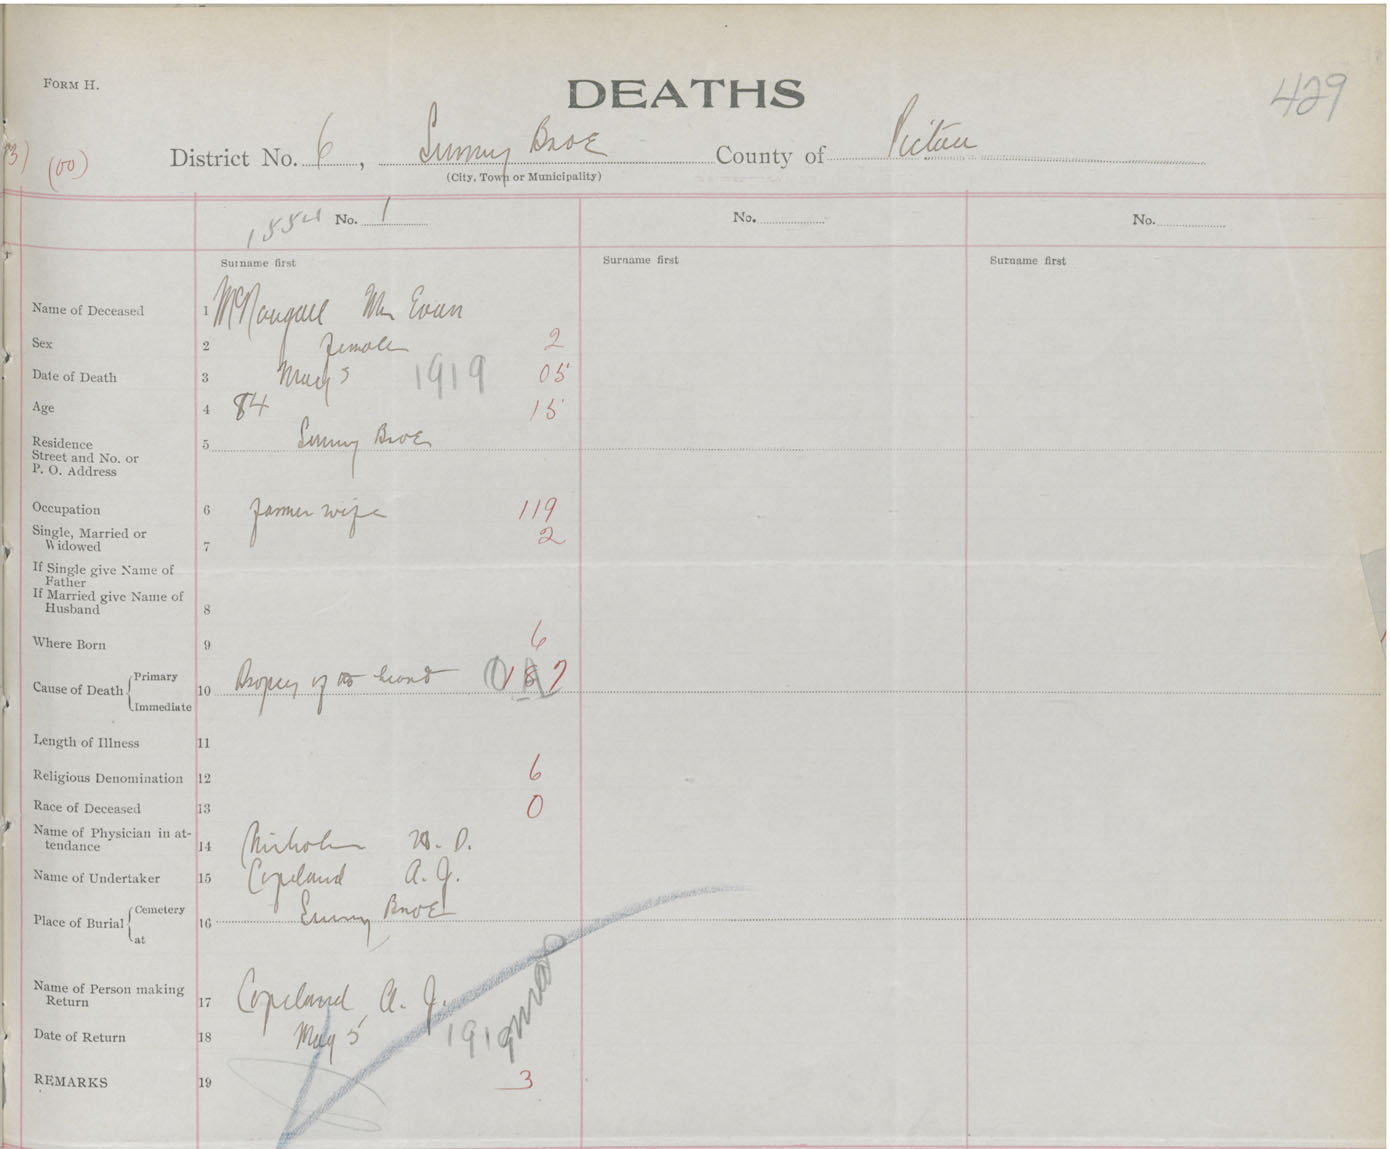 FORM H.
DEATHS
429
3) (00)
District No. 6, Sunny Brae County of Pictou
(City, Town or Municipality)
No. 1 No. No.
Surname first Surname first Surname first
Name of Deceased 1 McDougall Mrs Evan
Sex 2 female 2
Date of Death 3 May 5 1919 05
Age 4 84 15
Residence
Street and No. or
P. O. Address 5 Sunny Brae
Occupation 6 farmer wife 119
Single, Married or
Widowed 7 2
If Single give Name of
Father
If Married give Name of
Husband 8
Where Born 9 6
Cause of Death Primary
Immediate 10 Dropsy of heart 187
Length of Illness 11
Religious Denomination 12 6
Race of Deceased 13 0
Name of Physician in at-
tendance 14 D.
Name of Undertaker 15 Copeland A. J.
Place of Burial Cemetery
at 16 Sunny Brae
Name of Person making
Return 17 Copeland A. J.
Date of Return 18 May 5 1919
REMARKS 19 3